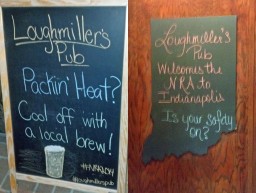 Loughmiller's
Pub
Packin' Heat?
Cool off with
a local brew!
#NRA2014
@loughmillerspub
Loughmiller's
Pub
Welcomes the
NRA to
Indianapolis
Is your safety
on?